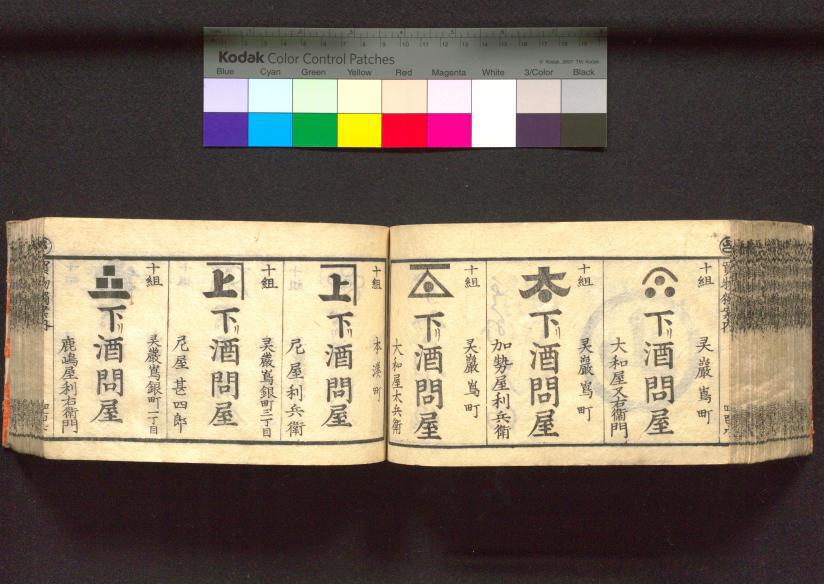 Kodak Color Control Patches
© Kodak, 2007 TM: Kodak
Blue Cyan Green Yellow Red Magenta White 3/Color Black
十組
呉巖嶌町
下リ酒問屋
大和屋又右衛門
十組
呉巖嶌町
大
下リ酒問屋
加勢屋利兵衛
十組
呉巖嶌町
下リ酒問屋
大和屋太兵衛
十組
本湊町
上
下リ酒問屋
尼屋利兵衛
十組
呉巖嶌銀町二丁目
上
下リ酒問屋
尼屋甚四郎
十組
呉巖嶌銀町一丁目
下リ酒問屋
鹿嶋屋利右衛門